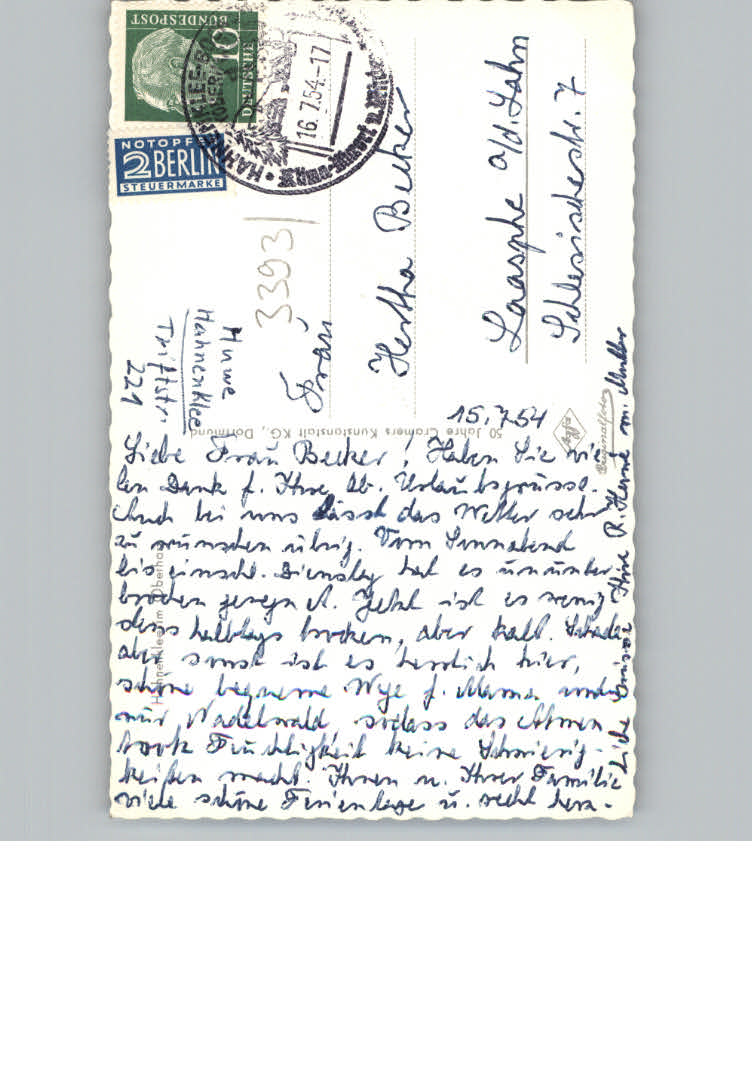 DEUTSCHE
BUNDESPOST
10
NOTOPFER
2 BERLIN
STEUERMARKE
HAHNENKLEE-BO
16.7.54.-17
3393
Huwe
Hahnenklee
Triftstr.
221
Frau
Hertha Becker
Laasphe a/d. Lahn
Schlesischestr. 7
50 Jahre Cramers Kunstanstalt KG., Dortmund
Originalfoto
Hahnenklee im Oberharz
15.7.54
Liebe Frau Becker! Haben Sie vie-
len Dank f. Ihre lb. Urlaubsgrüsse.
Auch bei uns lässt das Wetter sehr
zu wünschen übrig. Vom Sonnabend
bis einschl. Dienstag hat es ununter-
brochen geregnet. Jetzt ist es wenig-
stens halbtags trocken, aber kalt. Schade
aber sonst ist es herrlich hier,
schöne bequeme Wege f. Mama und
nur Nadelwald, sodass das Atmen
trotz Feuchtigkeit keine Schwierig-
keiten macht. Ihnen u. Ihrer Familie
viele schöne Ferientage u. recht herz-
liche Grüsse Ihre R. Huwe m. Mutter